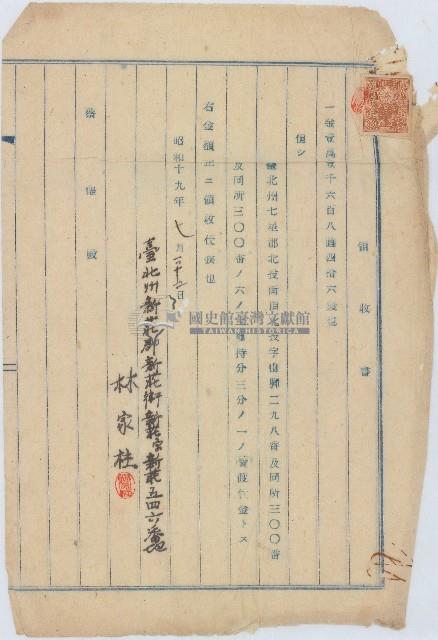 領收書
一金壹萬貳千六百八圓四拾六錢也
但シ
臺北州七星郡北投街北投字山脚二九八番及同所三〇〇番
及同所三〇〇番ノ六ノ持分三分ノ一ノ賣渡代金トス
右金額正ニ領收仕候也
昭和十九年七月二十三日
臺北州新莊郡新莊街新莊字新莊五四六番地
林家桂
蔡 殿
國史館臺灣文獻館
TAIWAN HISTORICA